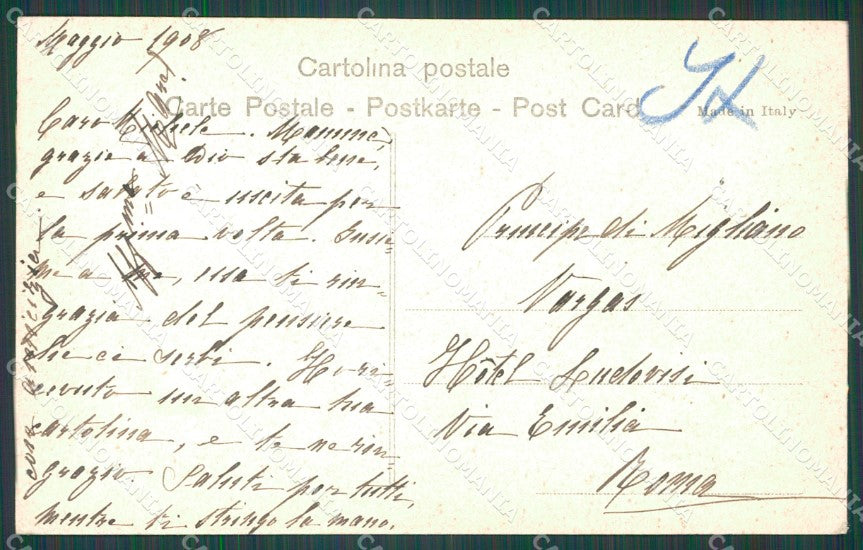 Maggio 1908
Cartolina postale
Carte Postale - Postkarte - Post Card
Made in Italy
Caro Michele. Mammà,
grazie a Dio sta bene,
e sabato è uscita per
la prima volta. Insie=
me a me, essa ti rin=
grazia del pensiero
che ci serbi. Ho ri=
cevuto un'altra tua
cartolina, e te ne rin=
grazio. Saluti per tutti,
mentre ti stringo la mano.
con amicizia
Principe di Migliano
Vargas
Hôtel Ludovisi
Via Emilia
Roma
CARTOLINOMANIA